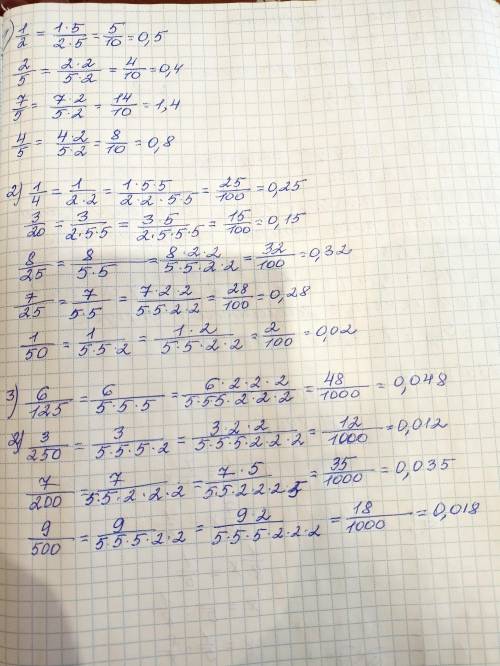 1) 1/2 = 1·5/2·5 = 5/10 = 0,5
2/5 = 2·2/5·2 = 4/10 = 0,4
7/5 = 7·2/5·2 = 14/10 = 1,4
4/5 = 4·2/5·2 = 8/10 = 0,8
2) 1/4 = 1/2·2 = 1·5·5/2·2·5·5 = 25/100 = 0,25
3/20 = 3/2·5·5 = 3·5/2·5·5·5 = 15/100 = 0,15
8/25 = 8/5·5 = 8·2·2/5·5·2·2 = 32/100 = 0,32
7/25 = 7/5·5 = 7·2·2/5·5·2·2 = 28/100 = 0,28
1/50 = 1/5·5·2 = 1·2/5·5·2·2 = 2/100 = 0,02
3) 6/125 = 6/5·5·5 = 6·2·2·2/5·5·5·2·2·2 = 48/1000 = 0,048
2) 3/250 = 3/5·5·5·2 = 3·2·2/5·5·5·2·2·2 = 12/1000 = 0,012
7/200 = 7/5·5·2·2·2 = 7·5/5·5·2·2·2·5 = 35/1000 = 0,035
9/500 = 9/5·5·5·2·2 = 9·2/5·5·5·2·2·2 = 18/1000 = 0,018